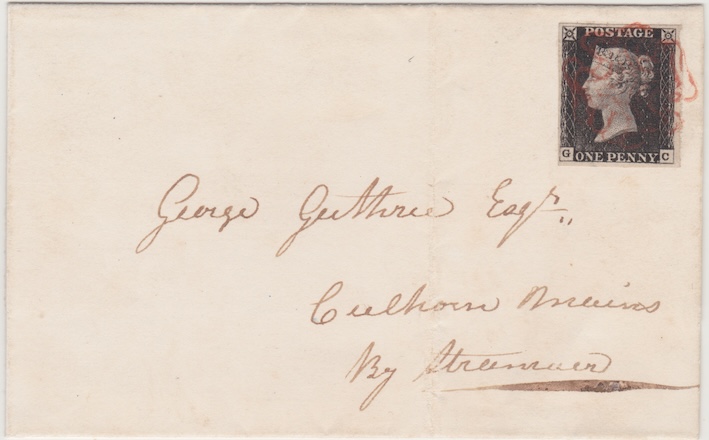 POSTAGE
G ONE PENNY C
George Guthrie Esqr.,,
Culhorn Mains
By Stranraer